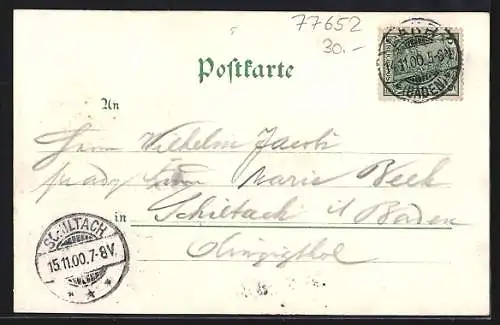 77652
30.-
14.11.00.5-8N.
(BADEN)
Postkarte
An
Herrn Wilhelm Jacobi
Marie Beck
in Schiltach i/ Baden
SCHILTACH
15.11.00.7-8V.